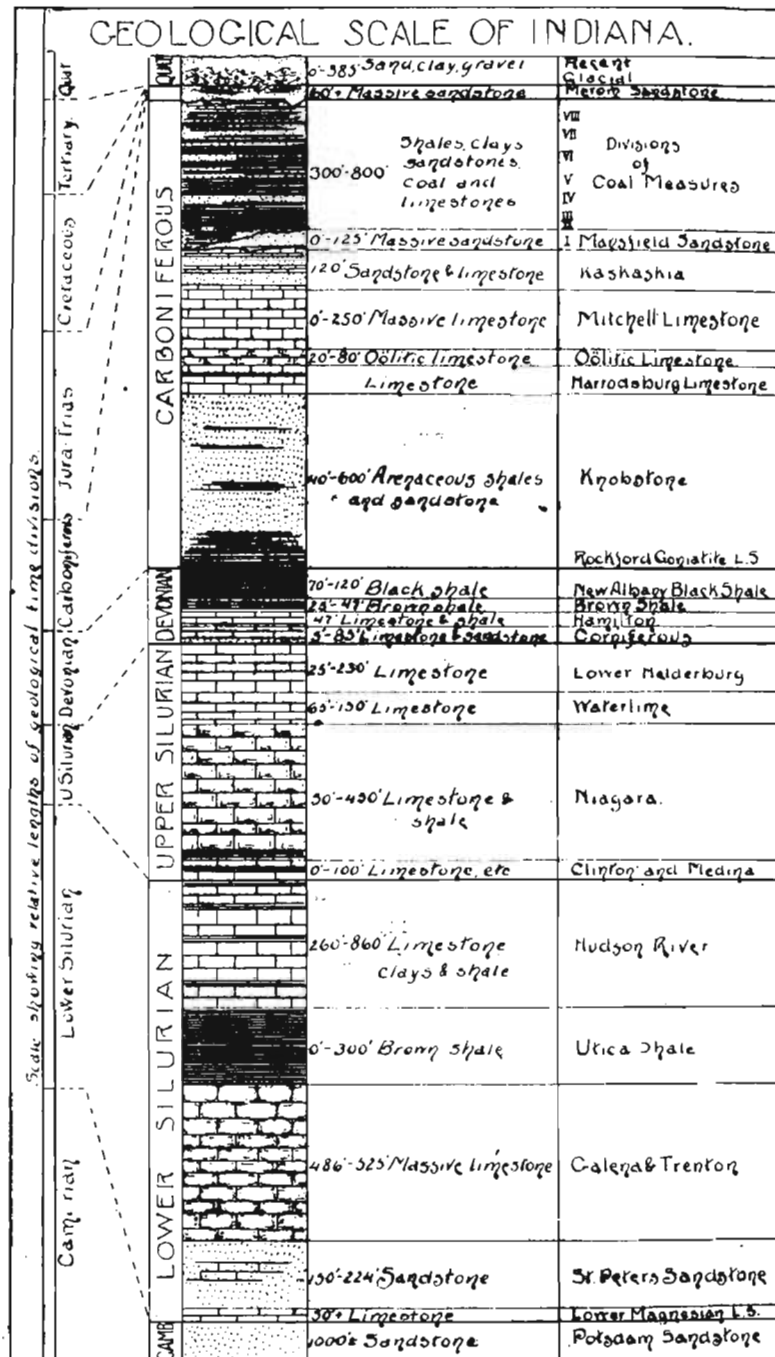 GEOLOGICAL SCALE OF INDIANA.
Scale showing relative lengths of geological time divisions.
Quat
Tertiary
Cretaceous
Jura Trias
Carboniferous
Devonian
U Silurian
Lower Silurian
QUAT
CARBONIFEROUS
DEVONIAN
UPPER SILURIAN
LOWER SILURIAN
CAMB
0'-585' Sand, clay, gravel
Recent
Glacial
60'+ Massive sandstone
Merom Sandstone
300'-800'
Shales, clays
sandstones,
coal and
limestones
VIII
VII
VI
V
IV
III
II
Divisions
of
Coal Measures
0'-125' Massive sandstone
I Mansfield Sandstone
120' Sandstone & limestone
Kaskaskia
0'-250' Massive limestone
Mitchell Limestone
20'-80' Oölitic limestone
Oölitic Limestone
Limestone
Harrodsburg Limestone
40'-600' Arenaceous shales
and sandstone
Knobstone
Rockford Goniatite L.S
70'-120' Black shale
New Albany Black Shale
Brown shale
Brown Shale
47' Limestone & shale
Hamilton
5'-85' Limestone & sandstone
Corniferous
25'-230' Limestone
Lower Helderburg
65'-130' Limestone
Waterlime
50'-450' Limestone &
shale
Niagara.
0'-100' Limestone, etc
Clinton and Medina
260'-860' Limestone
clays & shale
Hudson River
0'-300' Brown shale
Utica Shale
486'-525' Massive limestone
Galena & Trenton
150'-224' Sandstone
St. Peters Sandstone
50'+ Limestone
Lower Magnesian L.S.
1000'± Sandstone
Potsdam Sandstone